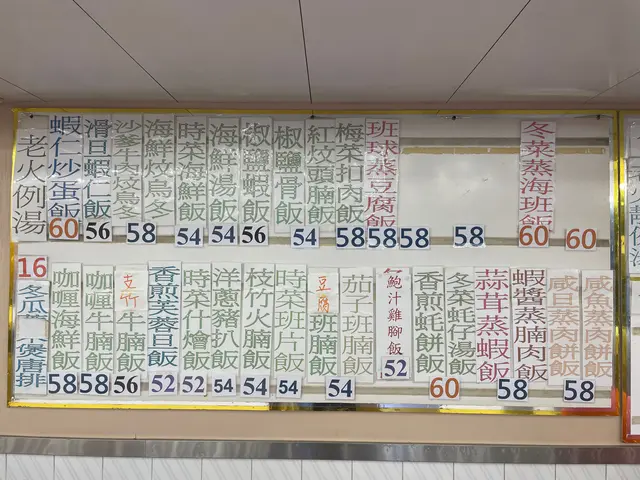 老火例湯
蝦仁炒蛋飯
滑旦蝦仁飯
沙爹牛肉炆烏冬
海鮮炆烏冬
時菜海鮮飯
海鮮湯飯
椒鹽蝦飯
椒鹽骨飯
紅炆頭腩飯
梅菜扣肉飯
班球蒸豆腐飯
冬菜蒸海班飯
60 56 58 54 54 56 54 58 58 58 58 60 60
16
冬瓜
煲唐排
咖喱海鮮飯
咖喱牛腩飯
支竹牛腩飯
香煎芙蓉旦飯
時菜什燴飯
洋蔥豬扒飯
枝竹火腩飯
時菜班片飯
豆腐班腩飯
茄子班腩飯
鮑汁雞腳飯
香煎蚝餅飯
冬菜蚝仔湯飯
蒜茸蒸蝦飯
蝦醬蒸腩肉飯
咸旦蒸肉餅飯
咸魚蒸肉餅飯
58 58 56 52 52 54 54 54 54 52 60 58 58